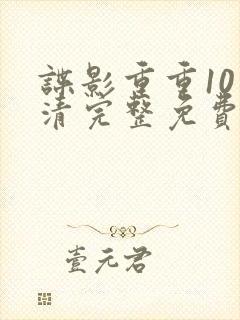 諜影重重10
清完整免費
壹元君